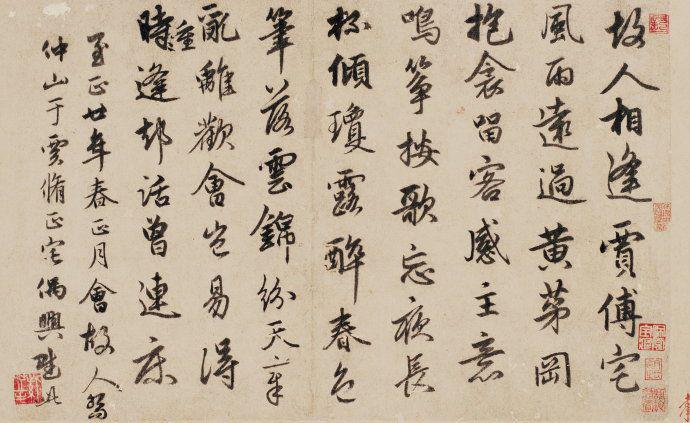 故人相逢賈傅宅
風雨遠過黃茅岡
抱衾留客感主意
鳴箏按歌忘夜長
杯傾瓊露醉春色
筆落雲錦紛天章
亂離歡會豈易得
時重逢却話曾連床
至正廿年春正月會故人
仲山于雲脩正宅偶興